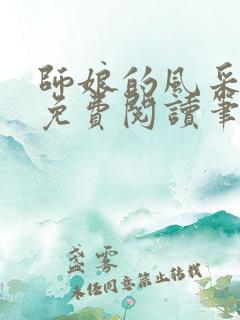 師娘的風采
免費閱讀筆
盞雾
未经同意禁止转载